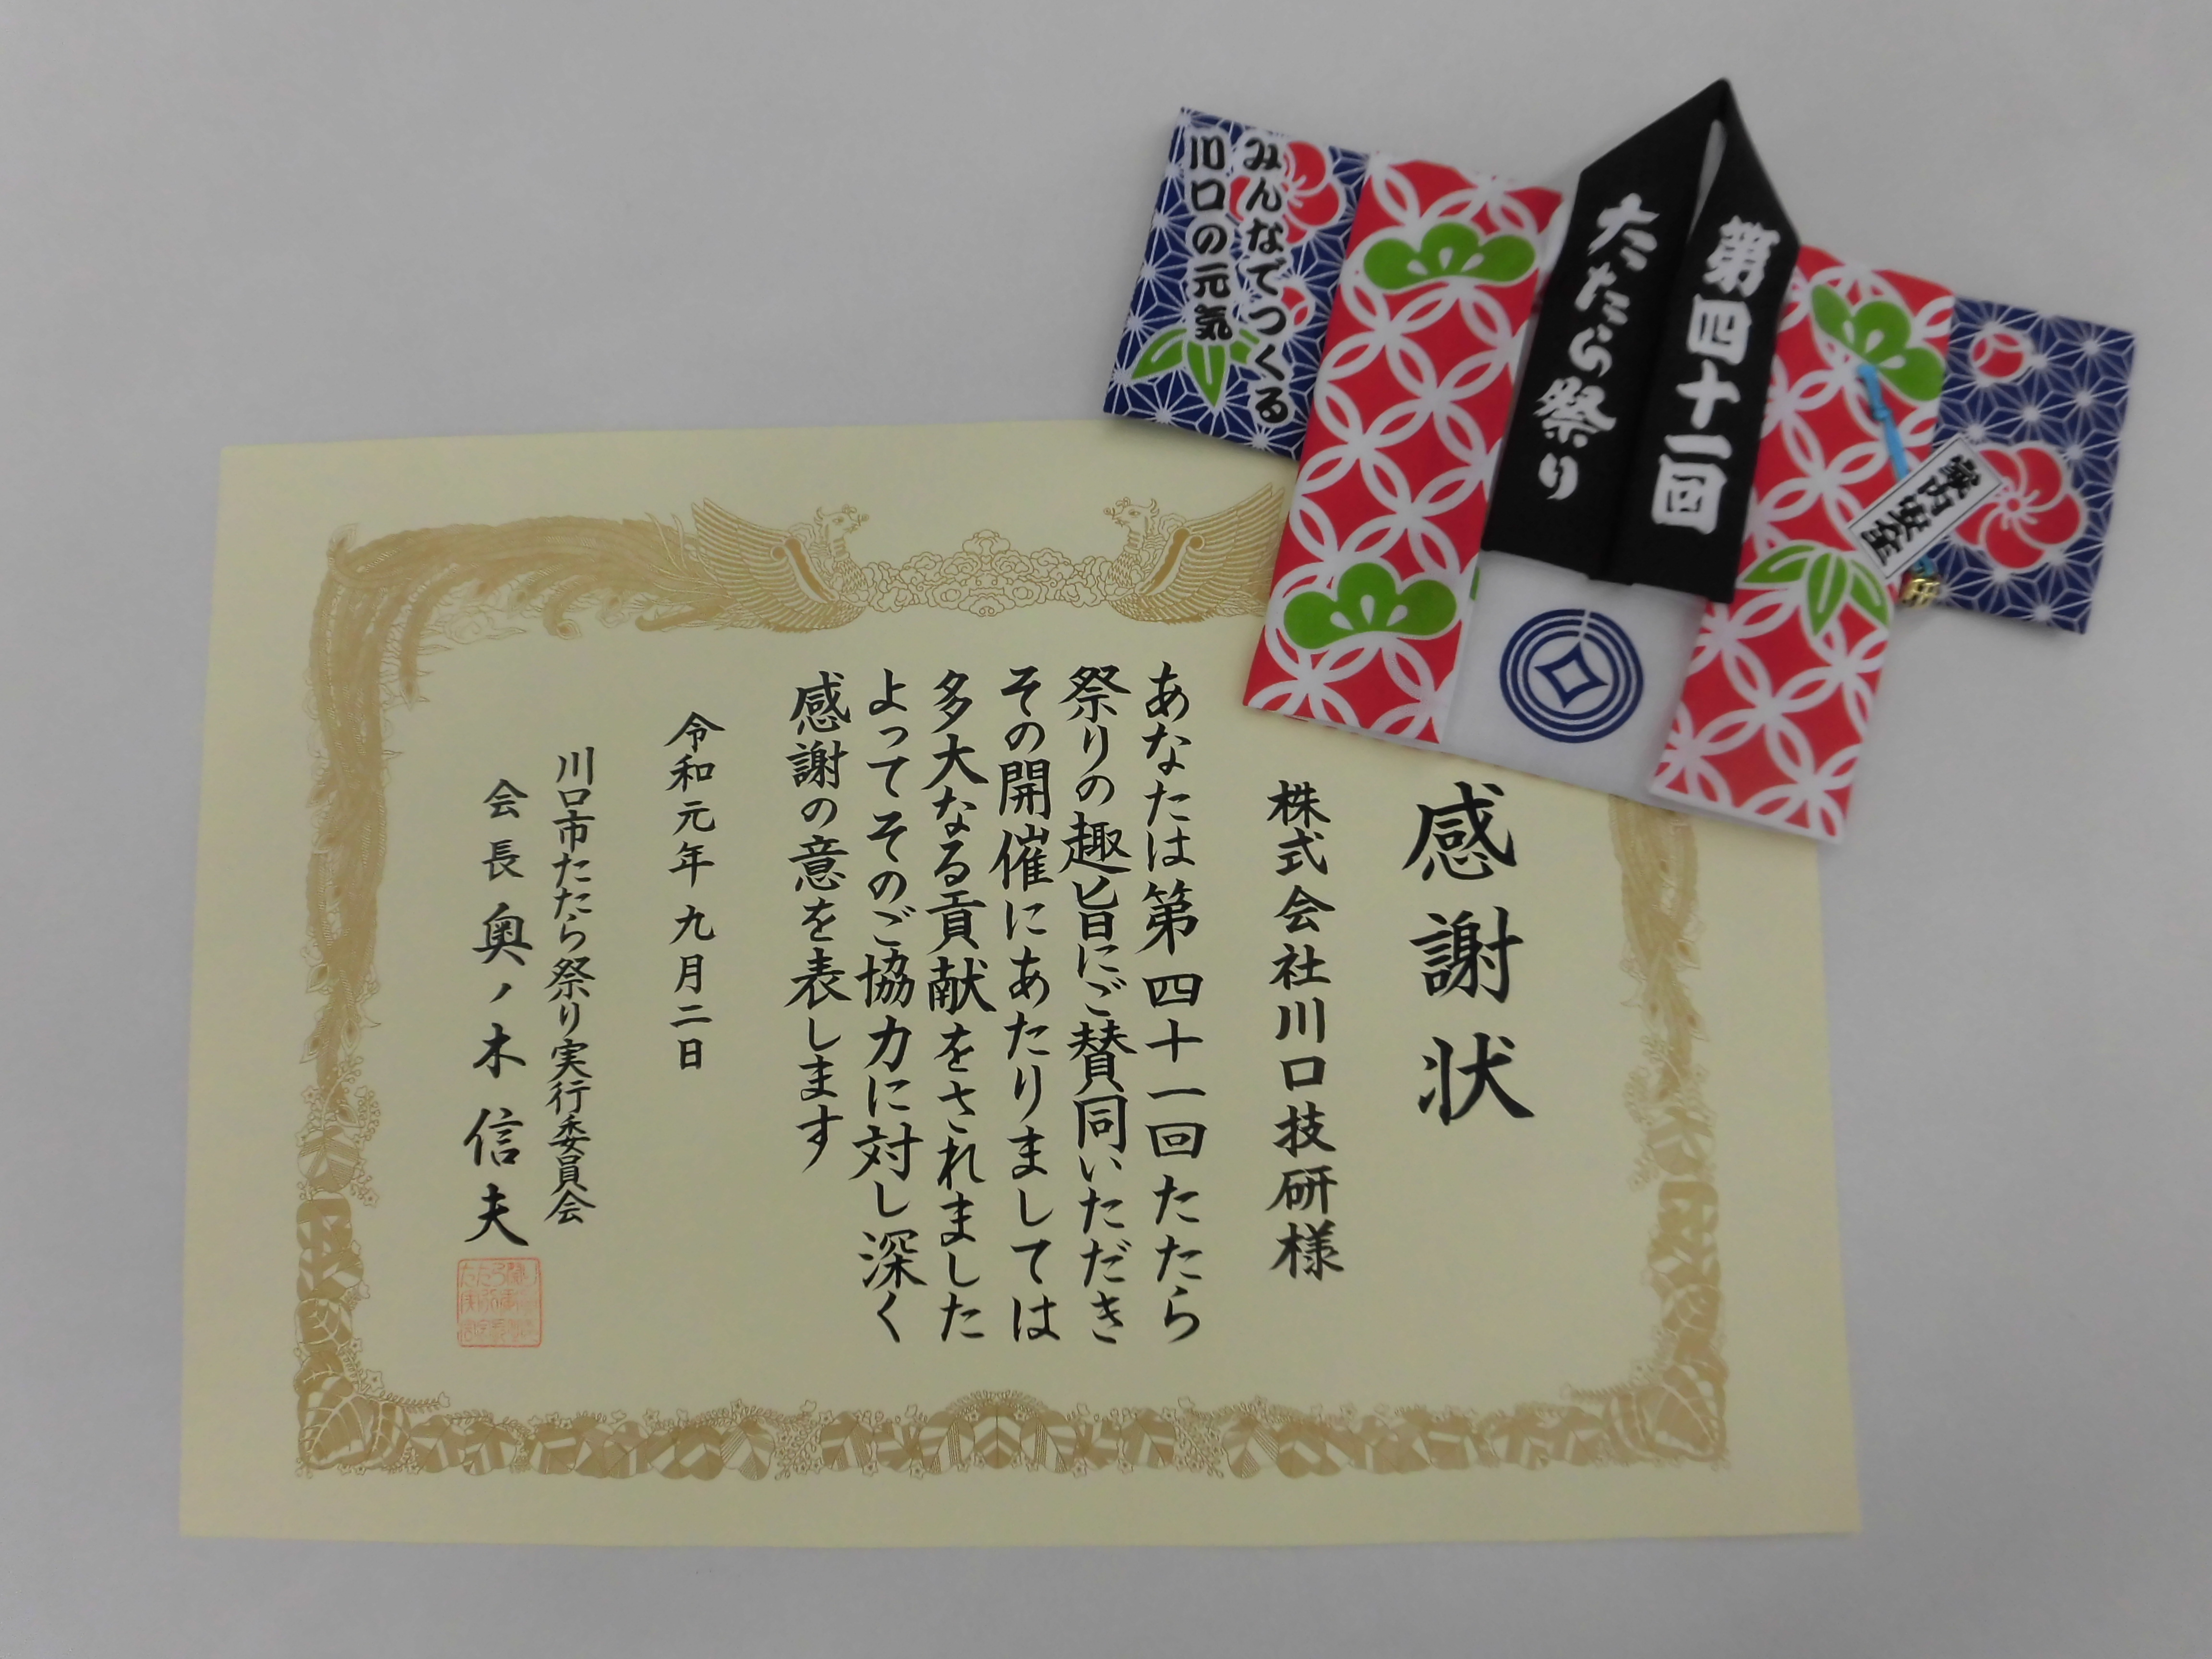 みんなでつくる
川口の元気
第四十一回
たたら祭り
家内安全
感謝状
株式会社川口技研様
あなたは第四十一回たたら
祭りの趣旨にご賛同いただき
その開催にあたりましては
多大なる貢献をされました
よってそのご協力に対し深く
感謝の意を表します
令和元年九月二日
川口市たたら祭り実行委員会
会長奥ノ木信夫